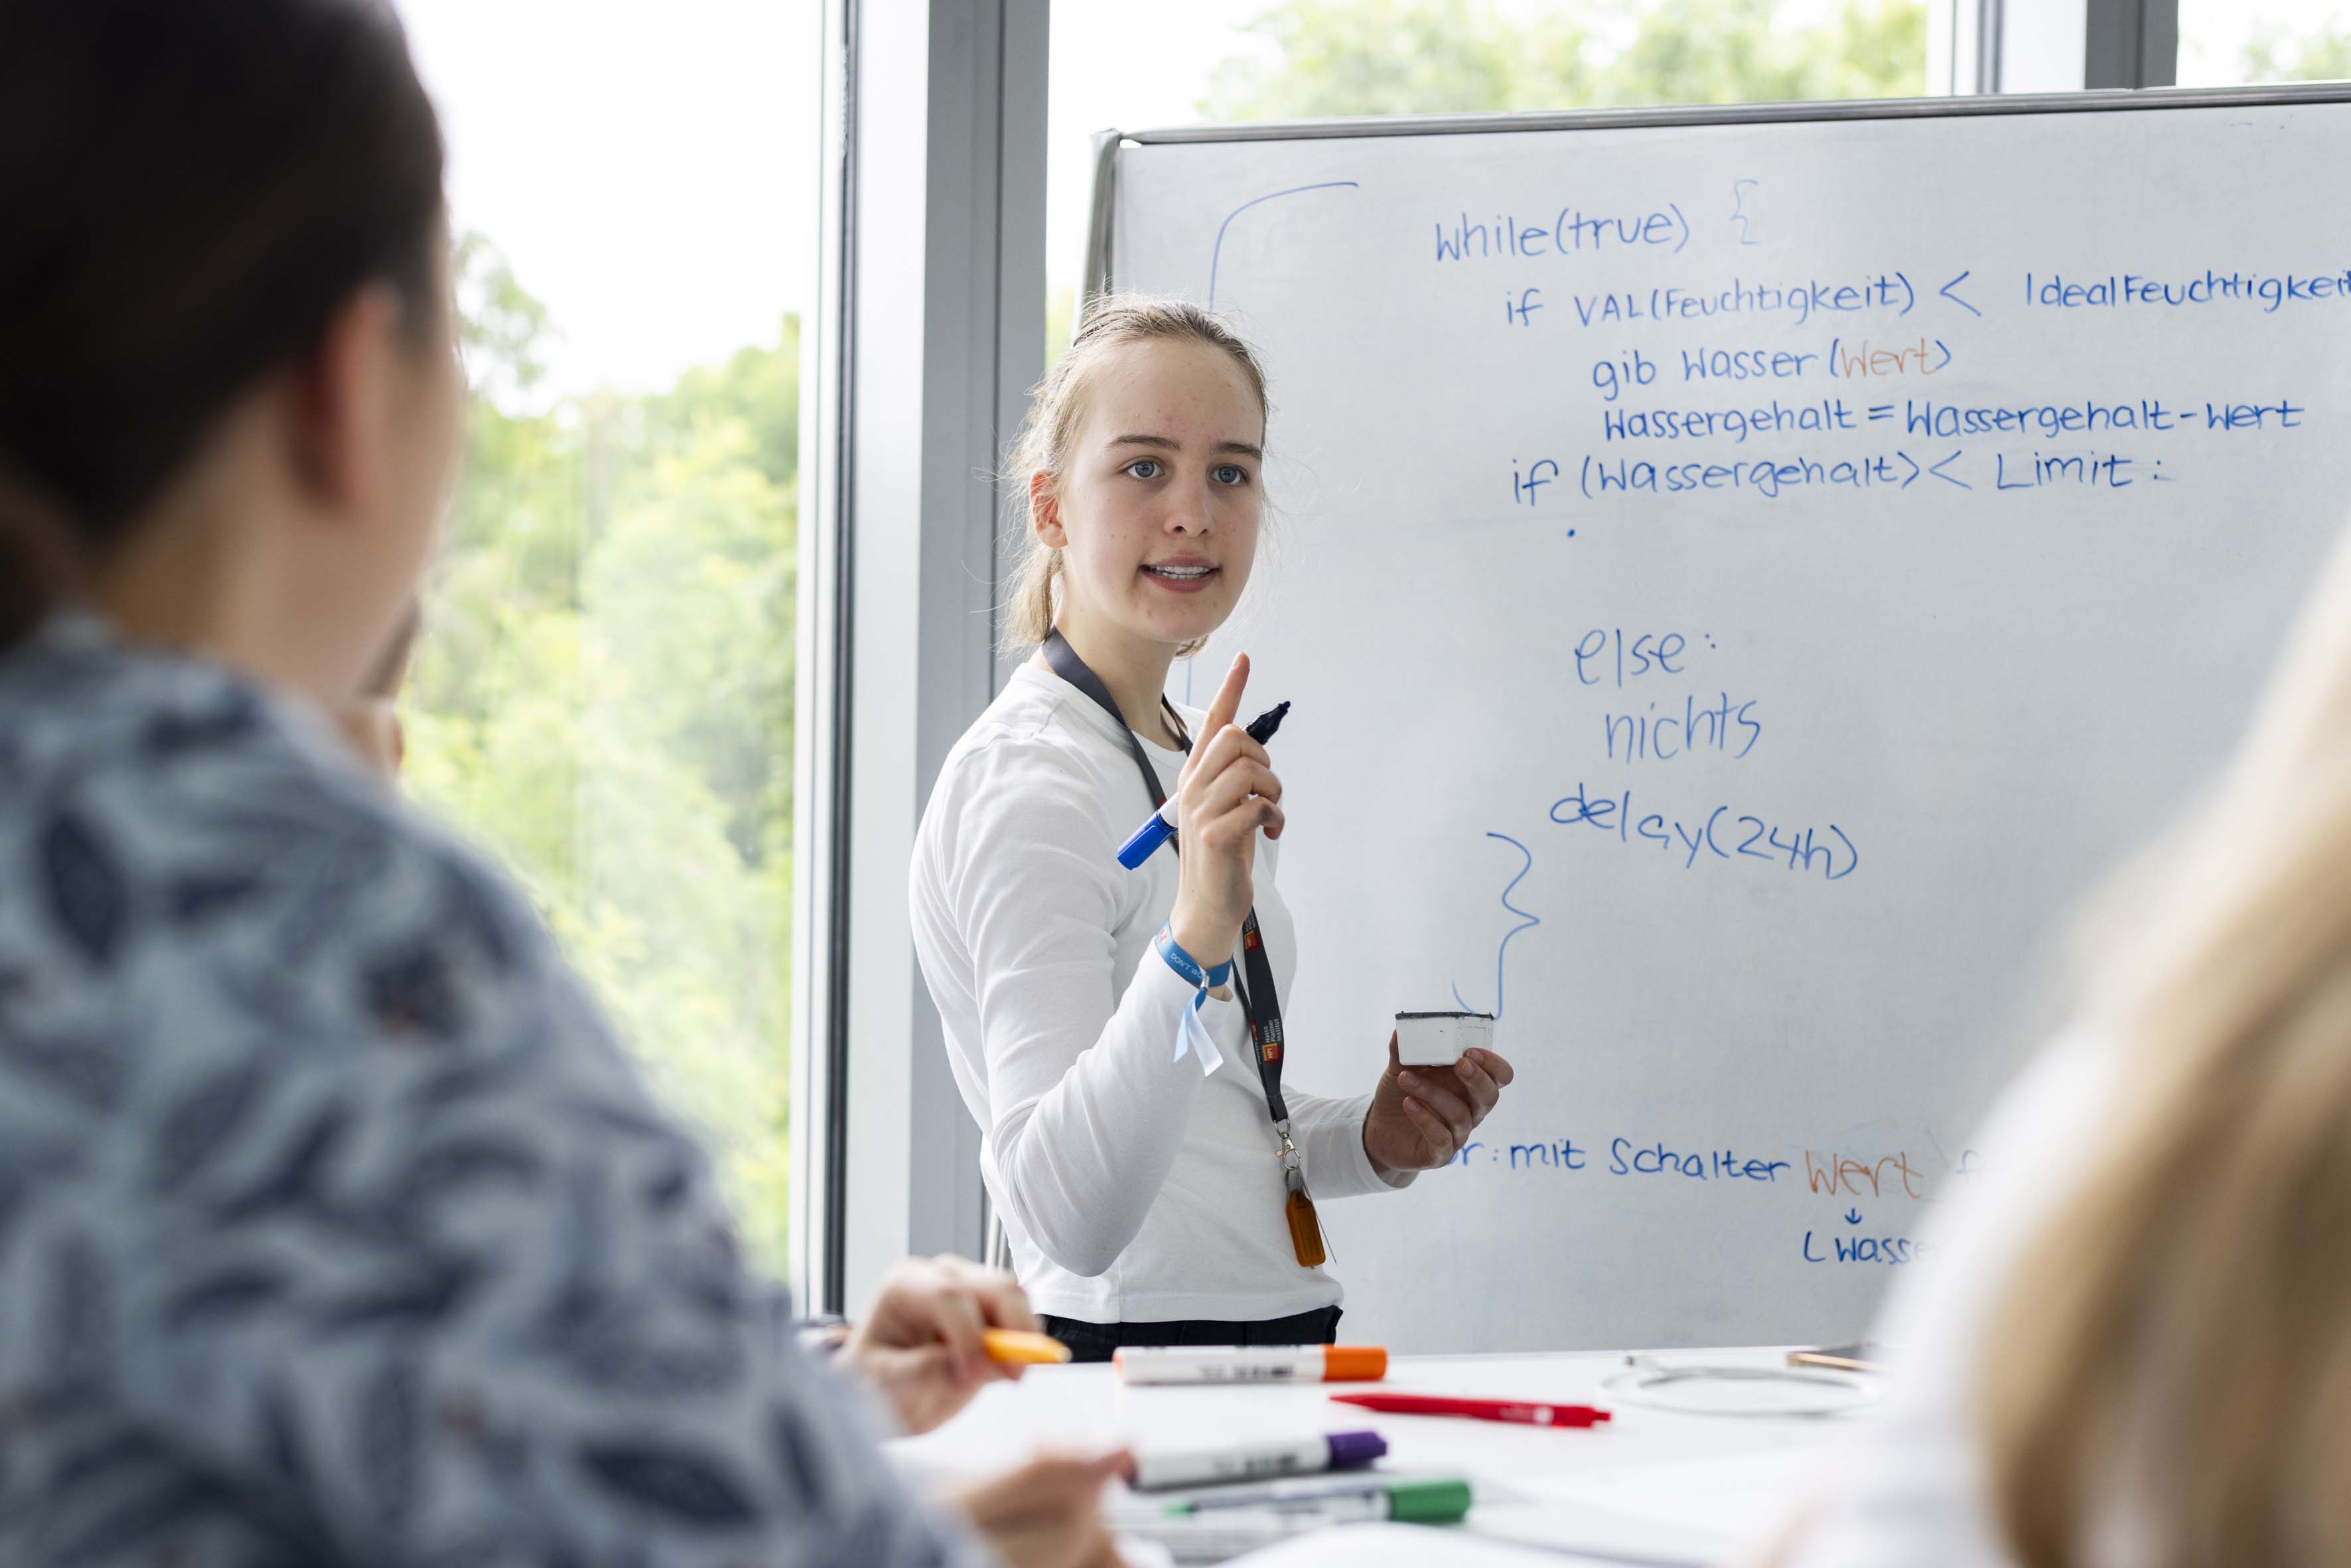 while(true) {
if VAL(Feuchtigkeit) < IdealFeuchtigkeit
gib Wasser(Wert)
Wassergehalt = Wassergehalt - Wert
if (Wassergehalt) < Limit :
.
else :
nichts
delay(24h)
}
r : mit Schalter Wert
↓
DON'T WO
HPI
Hasso
Plattner
Institut